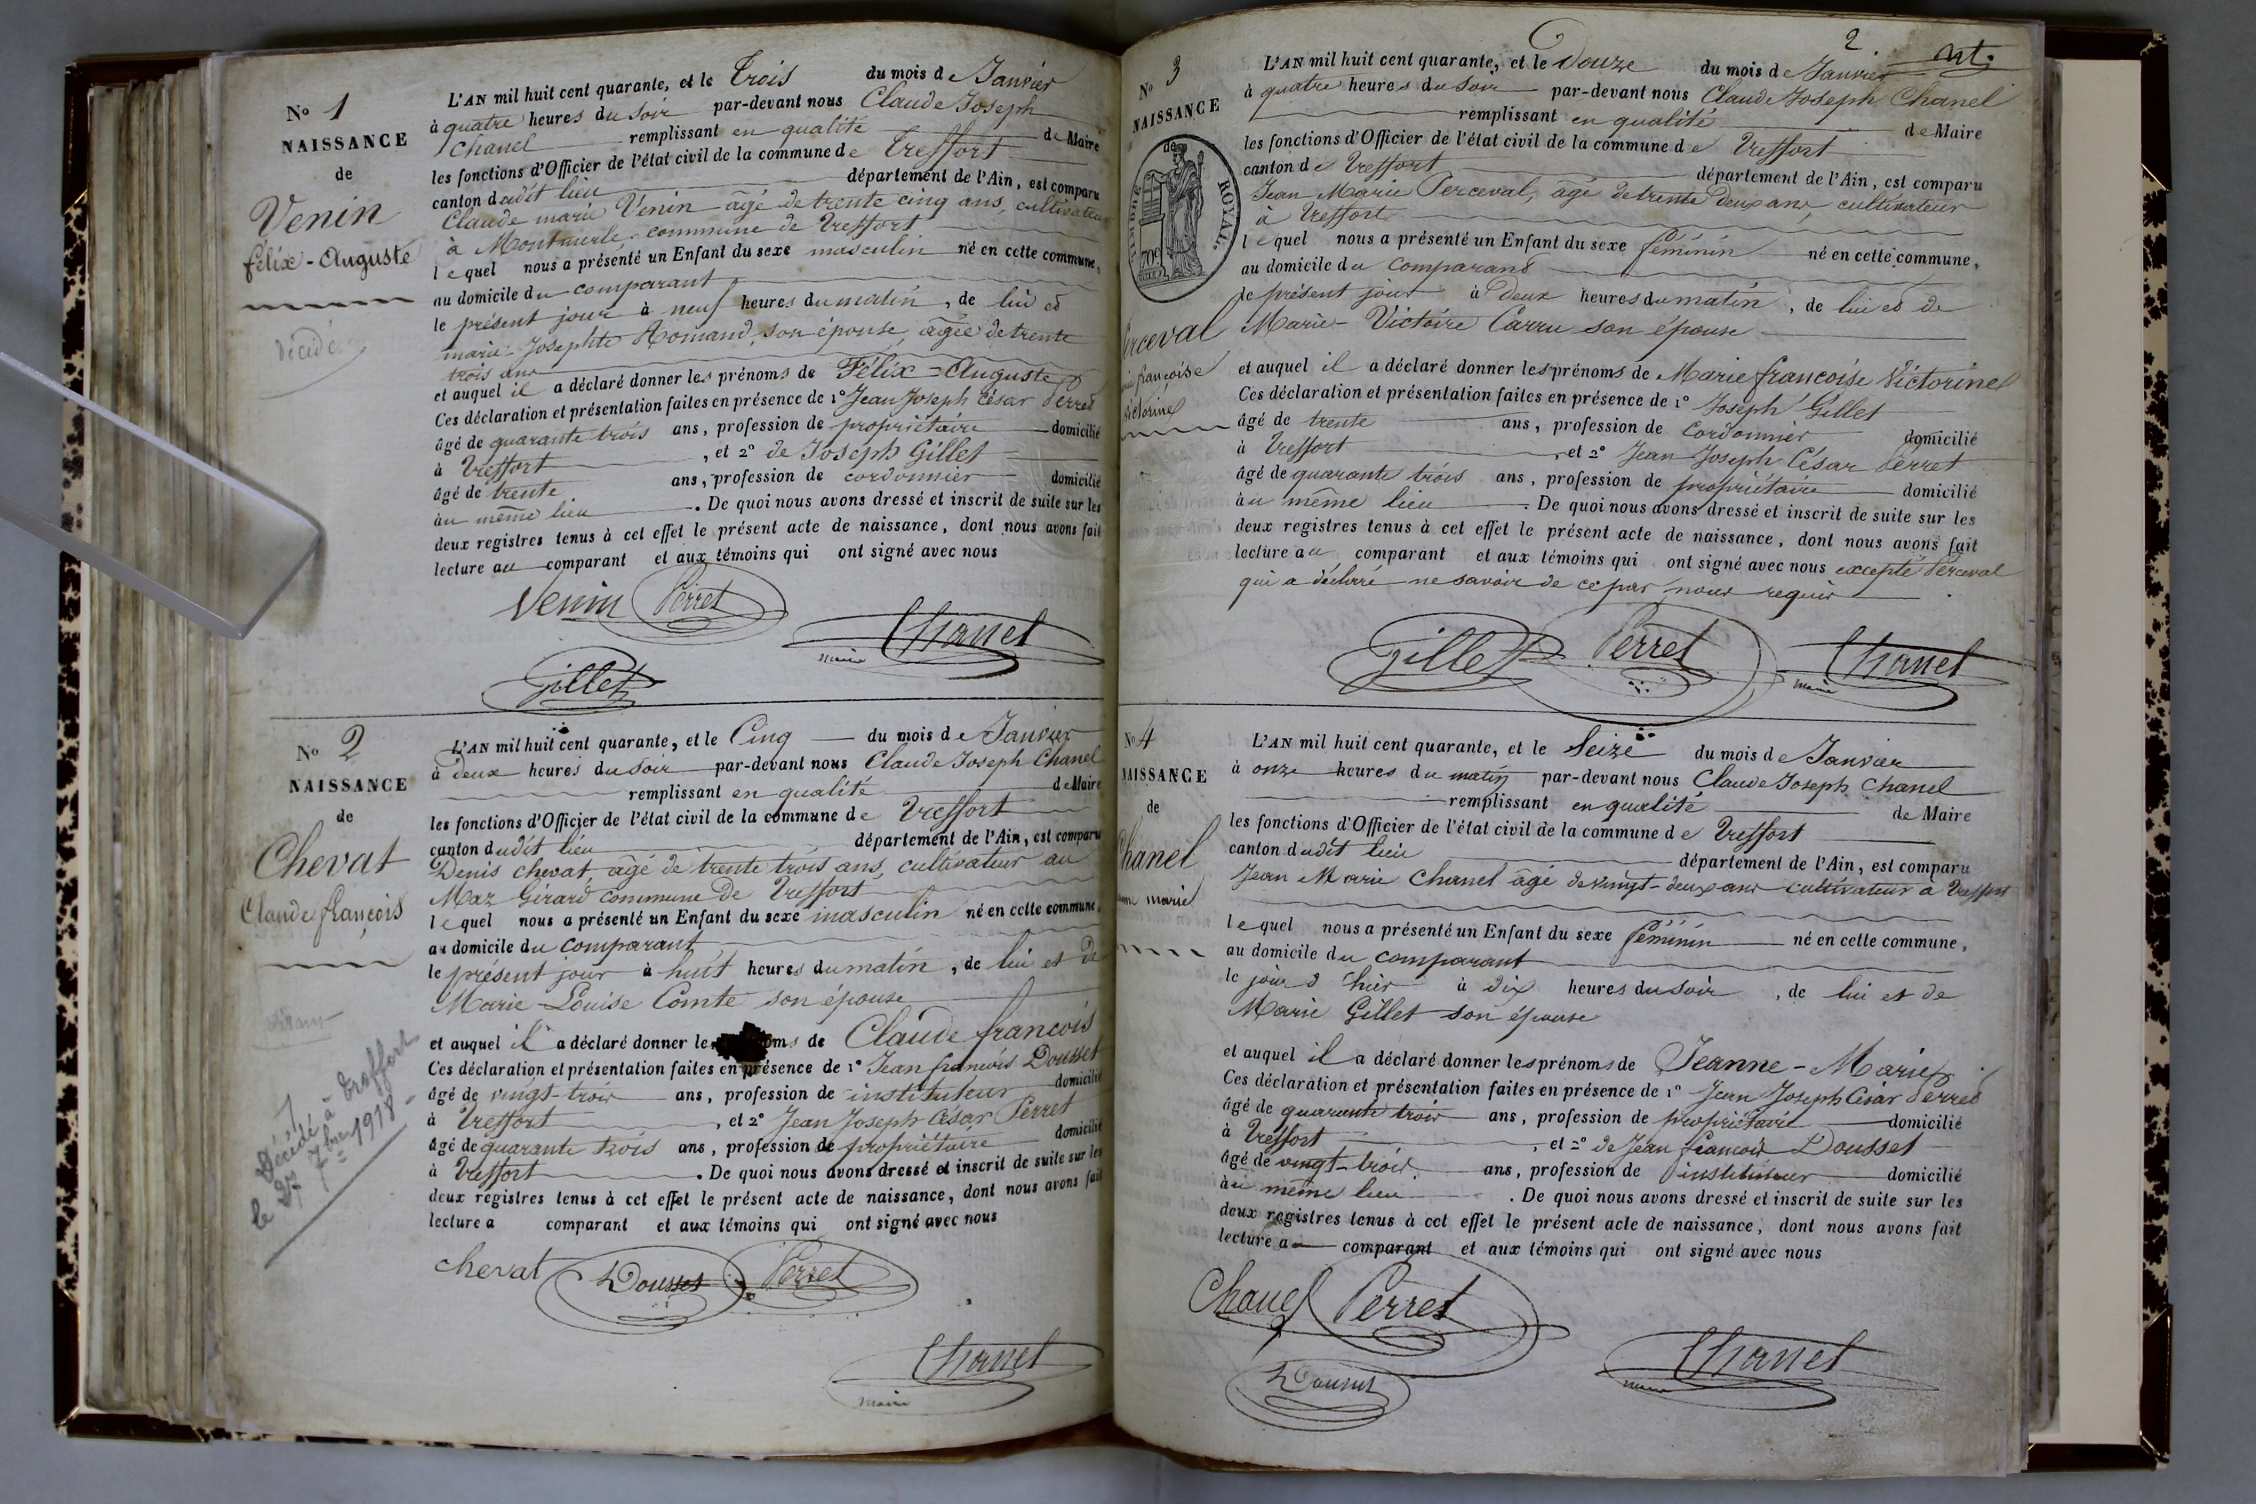 N° 1
NAISSANCE
de
Venin
félix-Auguste
Décédé
L'AN mil huit cent quarante, et le Trois du mois de Janvier
à quatre heures du soir par-devant nous Claude Joseph
Chanel remplissant en qualité de Maire
les fonctions d'Officier de l'état civil de la commune de Treffort
canton dudit lieu département de l'Ain, est comparu
Claude marie Venin âgé de trente cinq ans, cultivateur
à Montmerle commune de Treffort
lequel nous a présenté un Enfant du sexe masculin né en cette commune,
au domicile du comparant
le présent jour à neuf heures du matin, de lui et
marie-Josephte Romand, son épouse, âgée de trente
trois ans
et auquel il a déclaré donner les prénoms de Félix=Auguste
Ces déclaration et présentation faites en présence de 1° Jean Joseph César Perret
âgé de quarante trois ans, profession de propriétaire domicilié
à Treffort, et 2° de Joseph Gillet
âgé de trente ans, profession de cordonnier domicilié
au même lieu. De quoi nous avons dressé et inscrit de suite sur les
deux registres tenus à cet effet le présent acte de naissance, dont nous avons fait
lecture au comparant et aux témoins qui ont signé avec nous
Venin Perret
Chanel
maire
Gillet
N° 2
NAISSANCE
de
Chevat
Claude françois
Décédé à Treffort
le 27 7bre 1918
L'AN mil huit cent quarante, et le Cinq du mois de Janvier
à deux heures du soir par-devant nous Claude Joseph Chanel
remplissant en qualité de Maire
les fonctions d'Officier de l'état civil de la commune de Treffort
canton dudit lieu département de l'Ain, est comparu
Denis chevat, âgé de trente trois ans, cultivateur au
Maz Girard commune de Treffort
lequel nous a présenté un Enfant du sexe masculin né en cette commune,
au domicile du comparant
le présent jour à huit heures du matin, de lui et de
Marie-Louise Comte son épouse
et auquel il a déclaré donner les oms de Claude françois
Ces déclaration et présentation faites en présence de 1° Jean françois Dousset
âgé de vingt-trois ans, profession de instituteur domicilié
à Treffort, et 2° Jean Joseph César Perret
âgé de quarante trois ans, profession de propriétaire domicilié
à Treffort. De quoi nous avons dressé et inscrit de suite sur les
deux registres tenus à cet effet le présent acte de naissance, dont nous avons fait
lecture a comparant et aux témoins qui ont signé avec nous
chevat Dousset Perret
Chanel
maire
2.
N° 3
NAISSANCE
de
TIMBRE ROYAL.
70c
Perceval
françoise
Victorine
L'AN mil huit cent quarante, et le Douze du mois de Janvier
à quatre heures du soir par-devant nous Claude Joseph Chanel
remplissant en qualité de Maire
les fonctions d'Officier de l'état civil de la commune de Treffort
canton de Treffort département de l'Ain, est comparu
Jean Marie Perceval, âgé de trente deux ans, cultivateur
à Treffort
lequel nous a présenté un Enfant du sexe féminin né en cette commune,
au domicile du comparant
le présent jour à Deux heures du matin, de lui et de
Marie-Victoire Carru son épouse
et auquel il a déclaré donner les prénoms de Marie françoise Victorine
Ces déclaration et présentation faites en présence de 1° Joseph Gillet
âgé de trente ans, profession de cordonnier domicilié
à Treffort, et 2° Jean Joseph César Perret
âgé de quarante trois ans, profession de propriétaire domicilié
au même lieu. De quoi nous avons dressé et inscrit de suite sur les
deux registres tenus à cet effet le présent acte de naissance, dont nous avons fait
lecture au comparant et aux témoins qui ont signé avec nous excepté Perceval
qui a déclaré ne savoir de ce par nous requis
Gillet Perret Chanel
maire
N° 4
NAISSANCE
de
Chanel
marie
L'AN mil huit cent quarante, et le Seize du mois de Janvier
à onze heures du matin par-devant nous Claude Joseph Chanel
remplissant en qualité de Maire
les fonctions d'Officier de l'état civil de la commune de Treffort
canton dudit lieu département de l'Ain, est comparu
Jean Marie Chanel âgé de vingt-deux ans cultivateur à Treffort
lequel nous a présenté un Enfant du sexe féminin né en cette commune,
au domicile du comparant
le jour d'hier à dix heures du soir, de lui et de
Marie Gillet son épouse
et auquel il a déclaré donner les prénoms de Jeanne-Marie
Ces déclaration et présentation faites en présence de 1° Jean Joseph César Perret
âgé de quarante trois ans, profession de propriétaire domicilié
à Treffort, et 2° de Jean françois Dousset
âgé de vingt-trois ans, profession de instituteur domicilié
au même lieu. De quoi nous avons dressé et inscrit de suite sur les
deux registres tenus à cet effet le présent acte de naissance, dont nous avons fait
lecture a comparant et aux témoins qui ont signé avec nous
Chanel Perret
Chanel
maire
Dousset